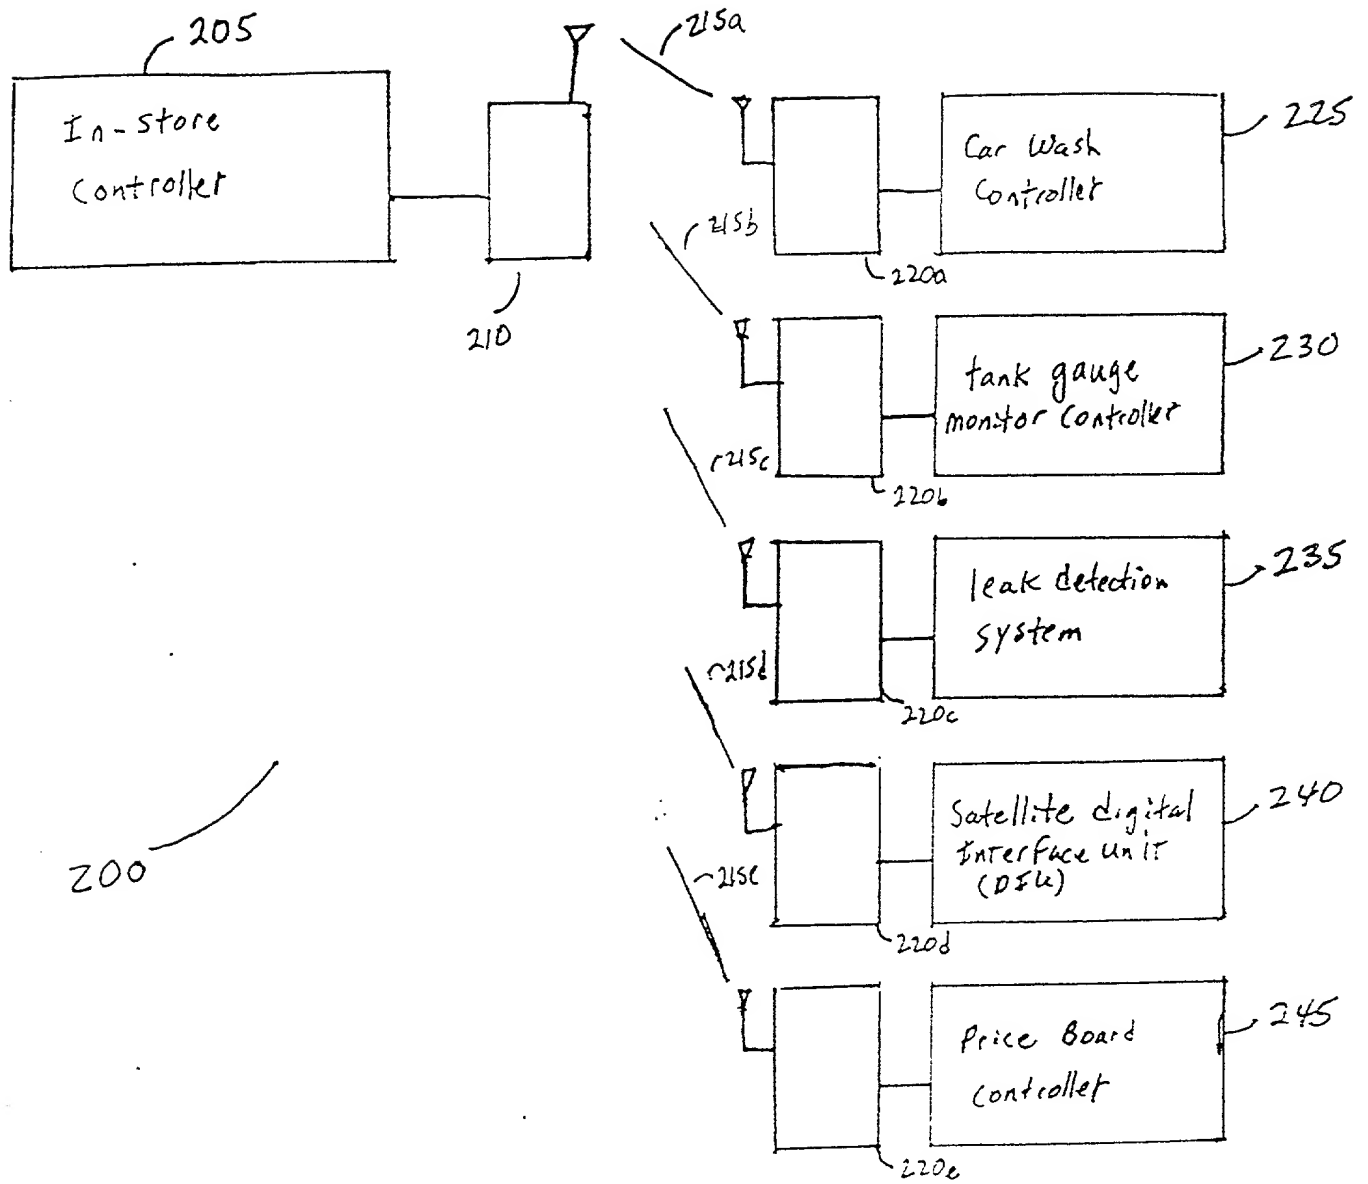 205
In-store
Controller
210
215a
220a
Car Wash
Controller
225
215b
220b
tank gauge
monitor controller
230
215c
220c
leak detection
system
235
215d
220d
Satellite digital
Interface Unit
(DIU)
240
215e
220e
Price Board
Controller
245
200